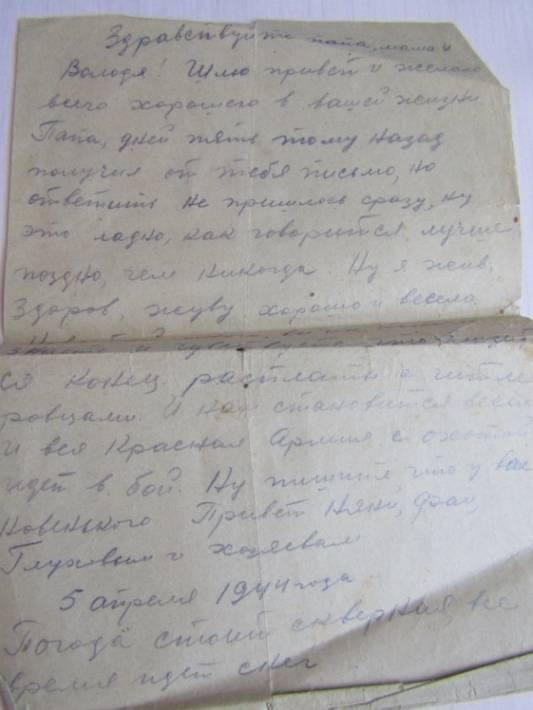 Здравствуйте папа, мама и
Володя! Шлю привет и желаю
всего хорошего в вашей жизни
Папа, дней пять тому назад
получил от тебя письмо, но
ответить не пришлось сразу, ну
это ладно, как говорится лучше
поздно, чем никогда. Ну я жив,
здоров, живу хорошо и весело.
ся конец расплаты с гитле
ровцами. И нам становится весел
и вся Красная Армия с охотой
идет в бой. Ну пишите что у вас
новенького Привет Няни,
Глуховым и хозяевам
5 апреля 1944 года
Погода стоит скверная, все
время идет снег